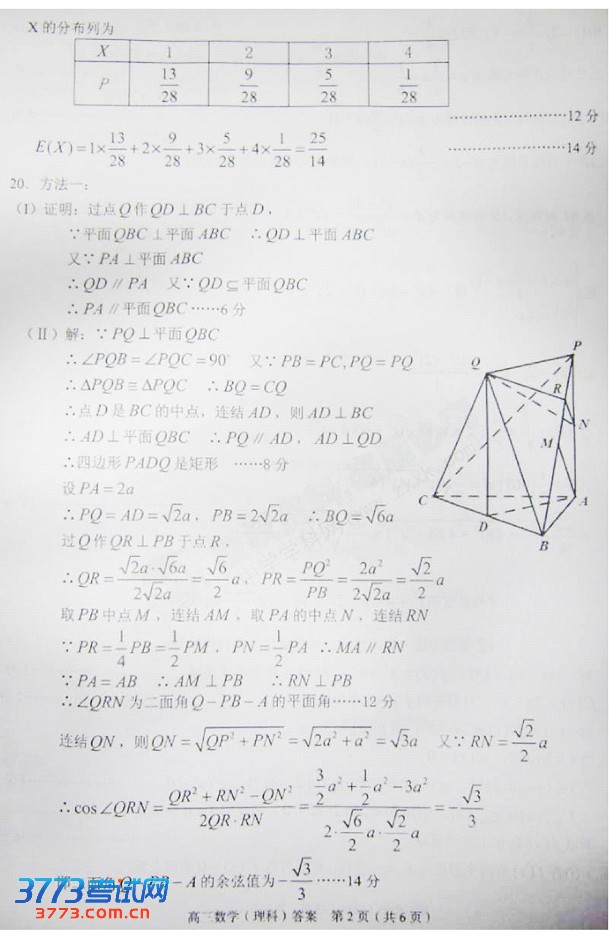 X的分布列为
X 1 2 3 4
P 13/28 9/28 5/28 1/28
…………………12分
E(X)=1×13/28+2×9/28+3×5/28+4×1/28=25/14 …………………14分
20．方法一：
(Ⅰ) 证明：过点Q作QD⊥BC于点D，
∵平面QBC⊥平面ABC ∴QD⊥平面ABC
又∵PA⊥平面ABC
∴QD∥PA 又∵QD⊆平面QBC
∴PA∥平面QBC……6分
(Ⅱ) 解：∵PQ⊥平面QBC
∴∠PQB=∠PQC=90° 又∵PB=PC,PQ=PQ
∴ΔPQB≅ΔPQC ∴BQ=CQ
∴点D是BC的中点，连结AD，则AD⊥BC
∴AD⊥平面QBC ∴PQ∥AD，AD⊥QD
∴四边形PADQ是矩形 ……8分
设PA=2a
∴PQ=AD=√2a，PB=2√2a ∴BQ=√6a
过Q作QR⊥PB于点R，
∴QR=√2a·√6a/2√2a=√6/2 a，PR=PQ²/PB=2a²/2√2a=√2/2 a
取PB中点M，连结AM，取PA的中点N，连结RN
∵PR=1/4 PB=1/2 PM，PN=1/2 PA ∴MA∥RN
∵PA=AB ∴AM⊥PB ∴RN⊥PB
∴∠QRN为二面角Q-PB-A的平面角……12分
连结QN，则QN=√(QP²+PN²)=√(2a²+a²)=√3a 又∵RN=√2/2 a
∴cos∠QRN=(QR²+RN²-QN²)/(2QR·RN)=(3/2 a²+1/2 a²-3a²)/(2·√6/2 a·√2/2 a)=-√3/3
-A的余弦值为-√3/3……14分
P
Q
R
N
M
C
A
D
B
3773考试网
3773.com.cn
高三数学（理科）答案 第2页（共6页）